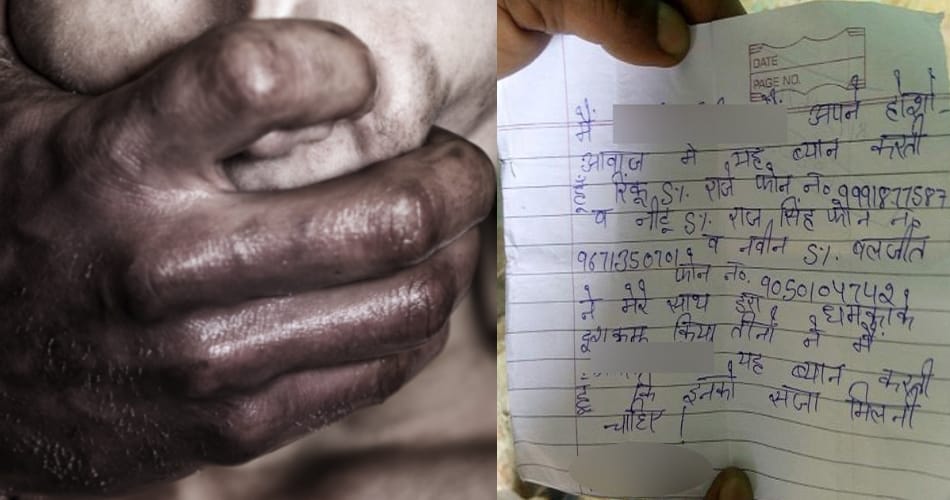 DATE
PAGE NO.
मैं अपने होशो
आवाज मे यह ब्यान करती
हूँ रिंकू S/. राजे फोन नं० 9991877587
व नीटू S/. राज सिंह फोन नं०
9671350701 व नवीन S/. वलजीत
फोन नं०
ने मेरे साथ डरा धमकाके
किया तीनो ने मैं
यह ब्यान करती
हूँ कि इनको सजा मिलनी
चाहिए।